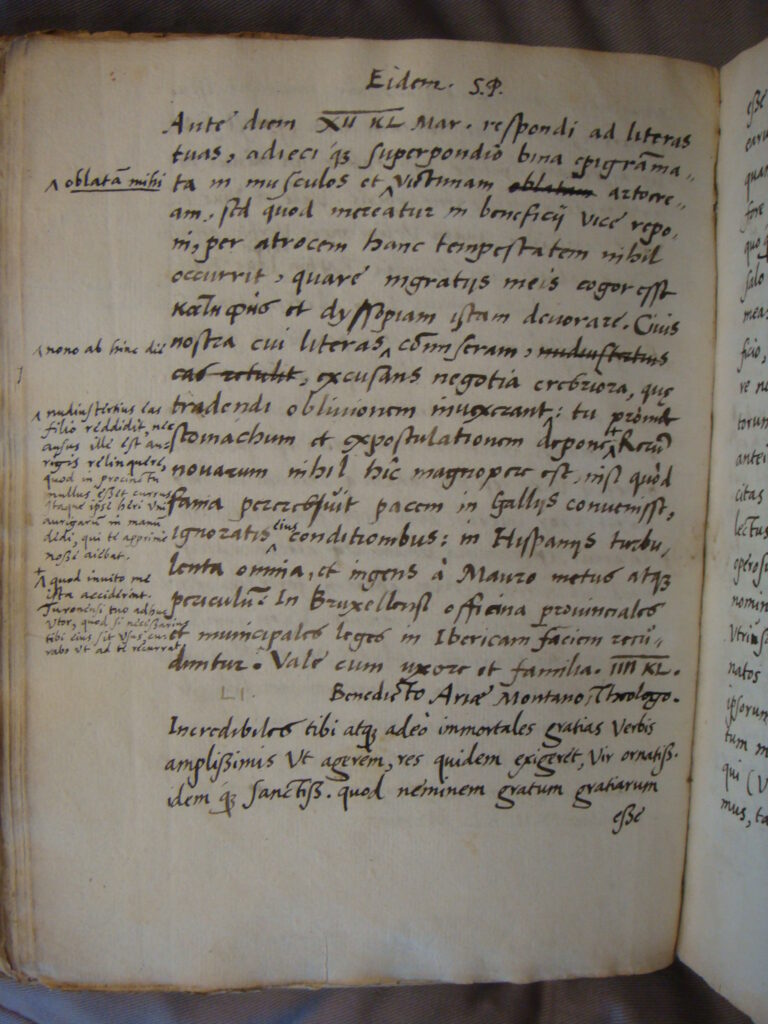 Eidem. S.P.
Ante diem XII KL Mar. respondi ad literas
tuas, adieci q₃ superpondio bina epigram̄a„
^ oblatā mihi
ta in musculos et ^ victimam oblatam artocre„
am, sed quod mereatur in beneficij vicē repo„
ni, per atrocem hanc tempestatem nihil
occurrit, quare ingratijs meis cogor esse
et dyssipiam istam devorare. Cuius
^ nono ab hinc die
nostra cui literas ^ com̄iseram, nudiustertius
eas retulit, excusans negotia crebriora, quę
tradendi oblivionem iniecerant: tu
stomachum et expostulationem depone. ^+ Rerū
novarum nihil hic magnopere est, nisi quòd
fama percrebuit pacem in Gallijs convenisse,
ignoratis ^ eius conditionibus: in Hispanijs turbu„
lenta omnia, et ingens à Mauro metus atq₃
periculū. In Bruxellensi officina provinciales
et municipales leges in Ibericam faciem recu„
duntur. Vale cum uxore et familia. IIII KL.
^ nudiustertius eas
filio reddidit, nec
ausus ille est au„
rigis relinquere,
quod in procinctu
nullus esset currus
Itaque ipse heri
aurigarū in manū
dedi, qui te apprime
nosse aiebat.
+
^ quod invito me
ista acciderint.
Turonensi tuo adhuc
utor, quod si necessarius
tibi eius sit usus, cu„
rabo ut ad te recurrat
LI.
Benedicto Ariæ Montano, Theologo.
Incredibiles tibi atq₃ adeò immortales gratias verbis
amplissimis ut agerem, res quidem exigeret, vir ornatiss.
idem q₃ sanctiss. quod neminem gratum gratiarum
esse